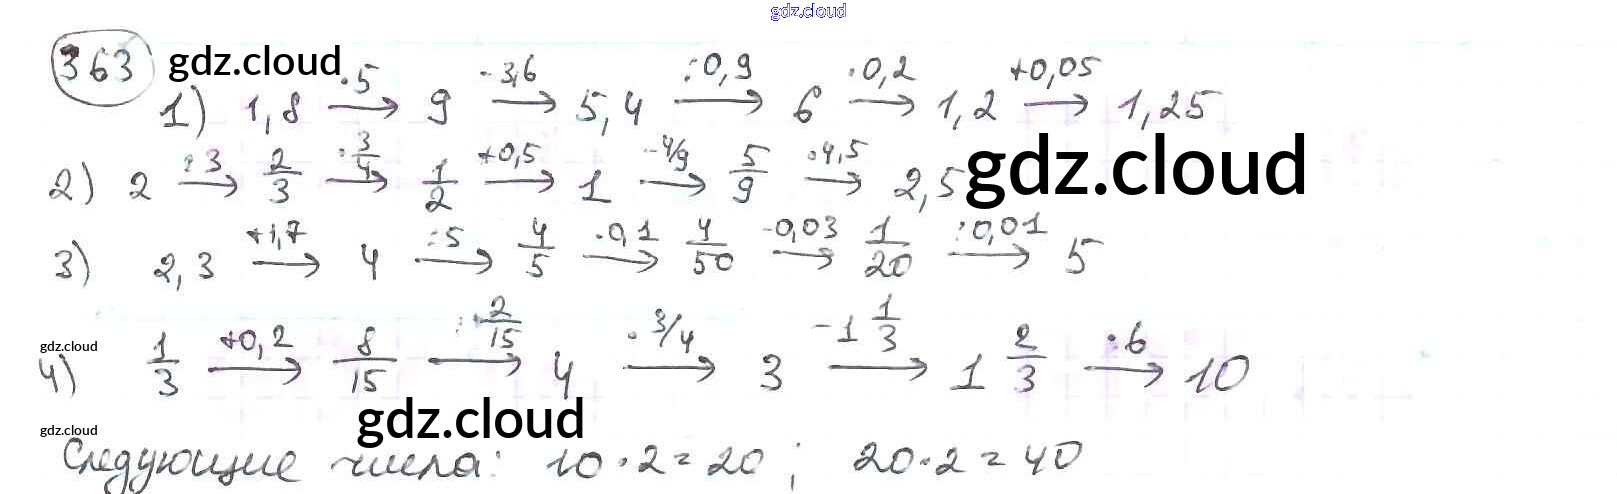 gdz.cloud
363 gdz.cloud
1) 1,8 —·5→ 9 —-3,6→ 5,4 —:0,9→ 6 —·0,2→ 1,2 —+0,05→ 1,25
gdz.cloud
2) 2 —:3→ 2/3 —·3/4→ 1/2 —+0,5→ 1 —-4/9→ 5/9 —·4,5→ 2,5
3) 2,3 —+1,7→ 4 —:5→ 4/5 —·0,1→ 4/50 —-0,03→ 1/20 —:0,01→ 5
gdz.cloud
4) 1/3 —+0,2→ 8/15 —:2/15→ 4 —·3/4→ 3 —-1 1/3→ 1 2/3 —·6→ 10
gdz.cloud
gdz.cloud
Следующие числа: 10·2=20; 20·2=40